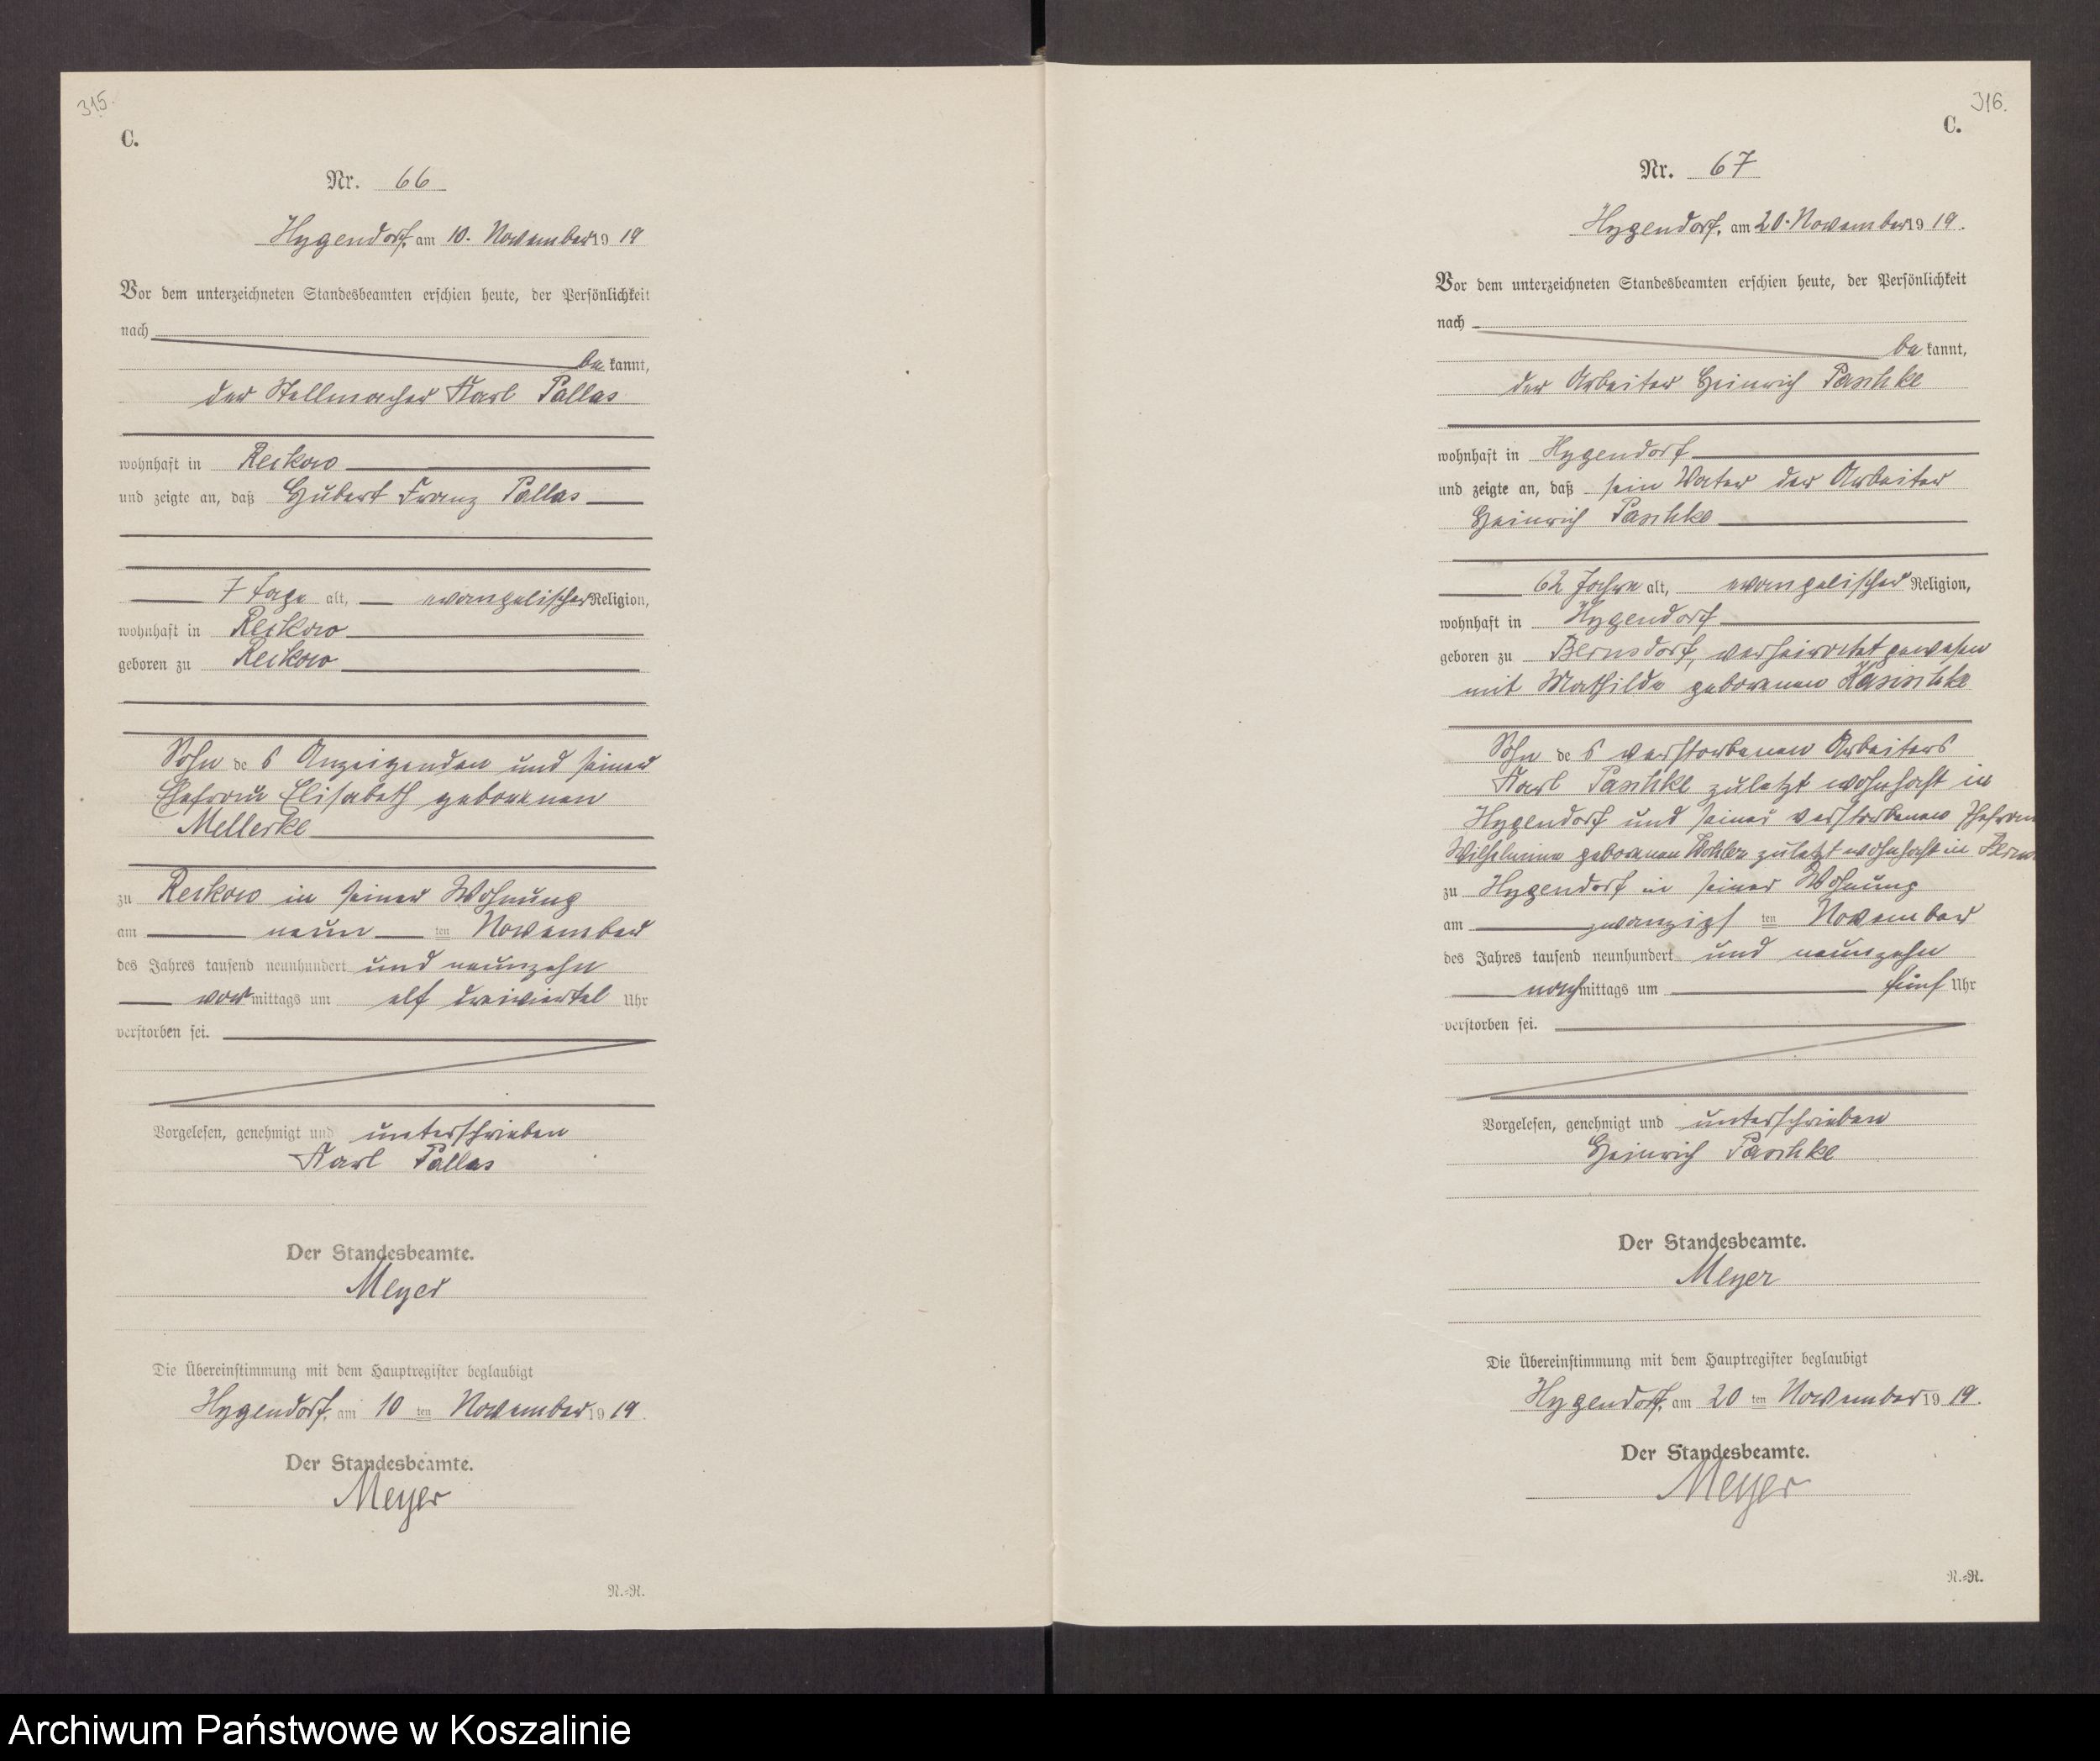 315.
C.
Nr. 66
Hygendorf, am 10. November 1919
Vor dem unterzeichneten Standesbeamten erschien heute, der Persönlichkeit
nach
be kannt,
der Stellmacher Karl Pallas
wohnhaft in Reckow
und zeigte an, daß Hubert Franz Pallas
7 Tage alt, evangelischer Religion,
wohnhaft in Reckow
geboren zu Reckow
Sohn des Anzeigenden und seiner
Ehefrau Elisabeth geborenen
Mellerke
zu Reckow in seiner Wohnung
am neun ten November
des Jahres tausend neunhundert und neunzehn
vormittags um elf dreiviertel Uhr
verstorben sei.
Vorgelesen, genehmigt und unterschrieben
Karl Pallas
Der Standesbeamte.
Meyer
Die Übereinstimmung mit dem Hauptregister beglaubigt
Hygendorf, am 10 ten November 1919.
Der Standesbeamte.
Meyer
N.=N.
316.
C.
Nr. 67
Hygendorf, am 20. November 1919.
Vor dem unterzeichneten Standesbeamten erschien heute, der Persönlichkeit
nach
be kannt,
der Arbeiter Heinrich Paschke
wohnhaft in Hygendorf
und zeigte an, daß sein Vater der Arbeiter
Heinrich Paschke
62 Jahre alt, evangelischer Religion,
wohnhaft in Hygendorf
geboren zu Bernsdorf, verheiratet gewesen
mit Mathilde geborenen
Sohn des verstorbenen Arbeiters
Karl Paschke zuletzt wohnhaft in
Hygendorf und seiner verstorbenen Ehefrau
Wilhelmine geborenen zuletzt wohnhaft in
zu Hygendorf in seiner Wohnung
am zwanzigsten November
des Jahres tausend neunhundert und neunzehn
nachmittags um fünf Uhr
verstorben sei.
Vorgelesen, genehmigt und unterschrieben
Heinrich Paschke
Der Standesbeamte.
Meyer
Die Übereinstimmung mit dem Hauptregister beglaubigt
Hygendorf, am 20 ten November 1919.
Der Standesbeamte.
Meyer
N.=N.
Archiwum Państwowe w Koszalinie